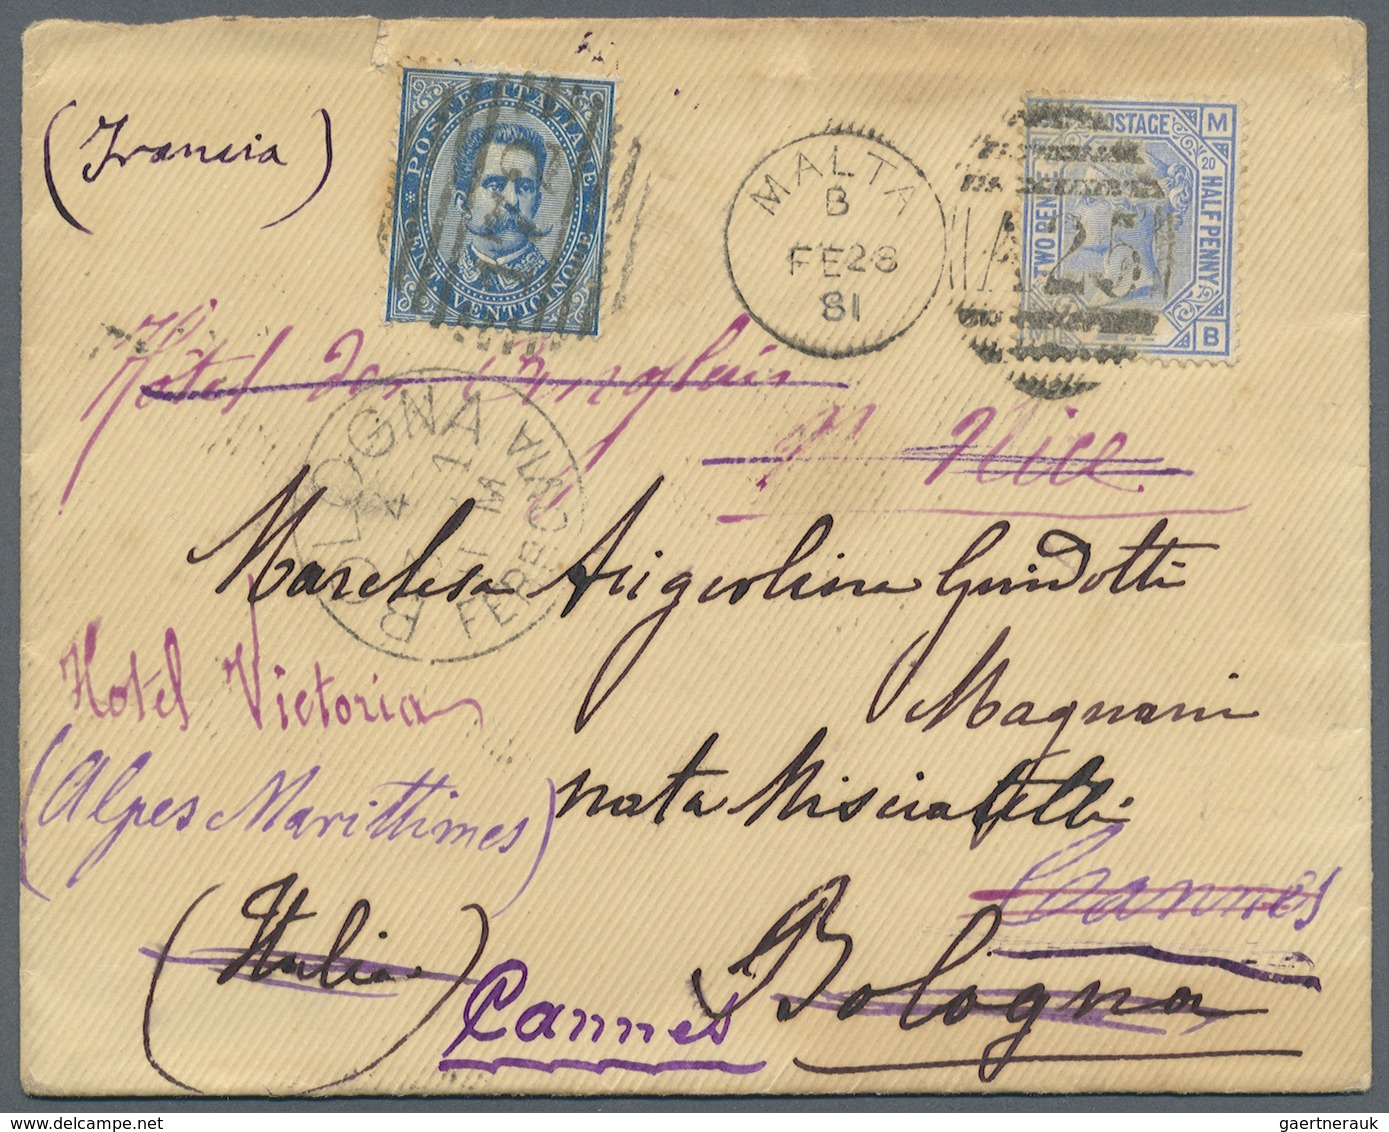 (Francia)
POSTE ITALIANE
CENT. VENTICINQUE
MALTA
B
FE 28
81
A25
POSTAGE
TWO PENCE
HALFPENNY
M
20
B
Hôtel des Anglais
Nice
BOLOGNA
FERROVIA
Marchesa Angiolina Guidotti
Magnani
nata Misciatelli
Hotel Victoria
(Alpes Marittimes)
Cannes
(Italia)
Bologna
Cannes
gaertnerauk